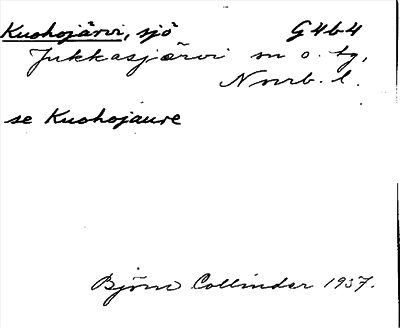 Kuohojärvi, sjö G4b4
Jukkasjärvi sn o. tg,
Norrb. l.
se Kuohojaure
Björn Collinder 1937.